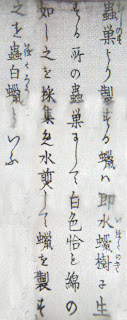 蟲巣より製する蠟ハ即水蠟樹に生
する所の蟲巣にして白色恰も綿の
如し之を採集し水煎して蠟を製す
之を蟲白蠟といふ